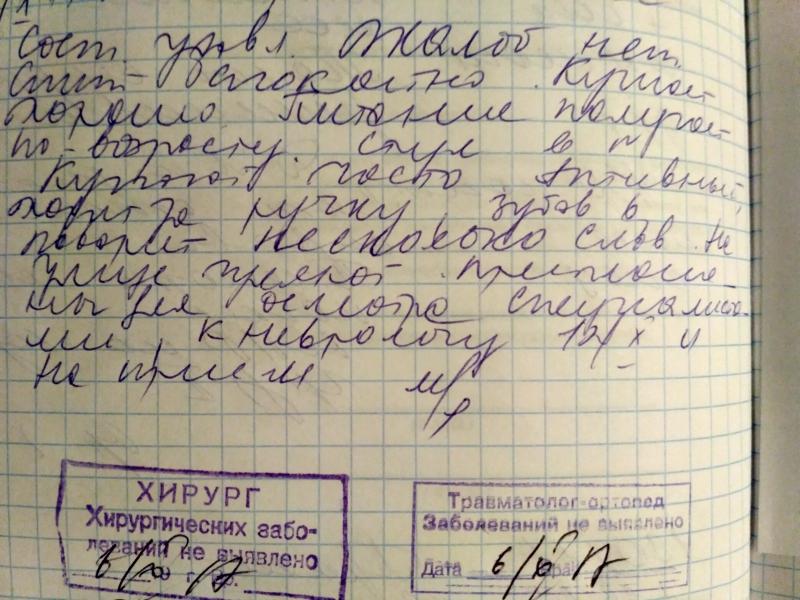 1
Сост. удовл. Жалоб нет.
Спит спокойно. Кушает
хорошо Питание получает
по-возрасту. Стул в N
Купают часто Активный,
ходит за ручку, зубов 8,
говорит несколько слов. На
улице гуляют. Приглаше-
ны для осмотра специалиста-
ми, к неврологу 12/X и
на прием м/р
ХИРУРГ
Хирургических забо-
леваний не выявлено
6/X 17
Травматолог-ортопед
Заболеваний не выявлено
Дата 6/X 17